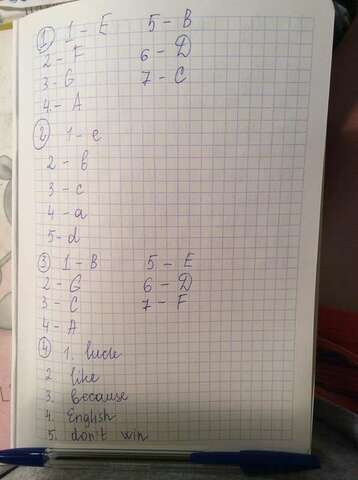 ① 1 - E 5 - B
2 - F 6 - D
3 - G 7 - C
4 - A
② 1 - e
2 - b
3 - c
4 - a
5 - d
③ 1 - B 5 - E
2 - G 6 - D
3 - C 7 - F
4 - A
④ 1.
2. like
3. because
4. English
5. don't win